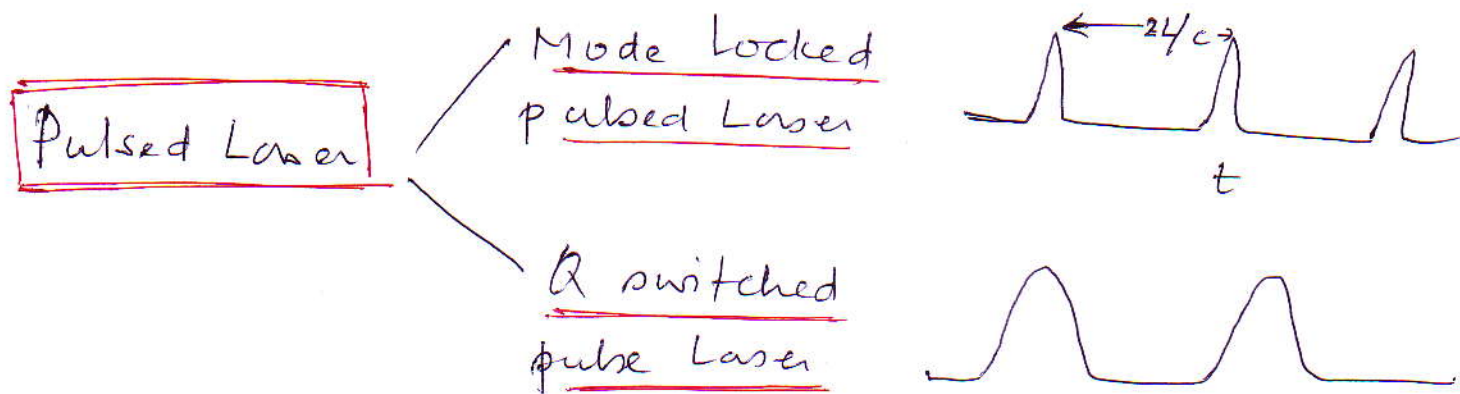 Pulsed Laser
Mode Locked
pulsed Laser
2L/c
t
Q switched
pulse Laser